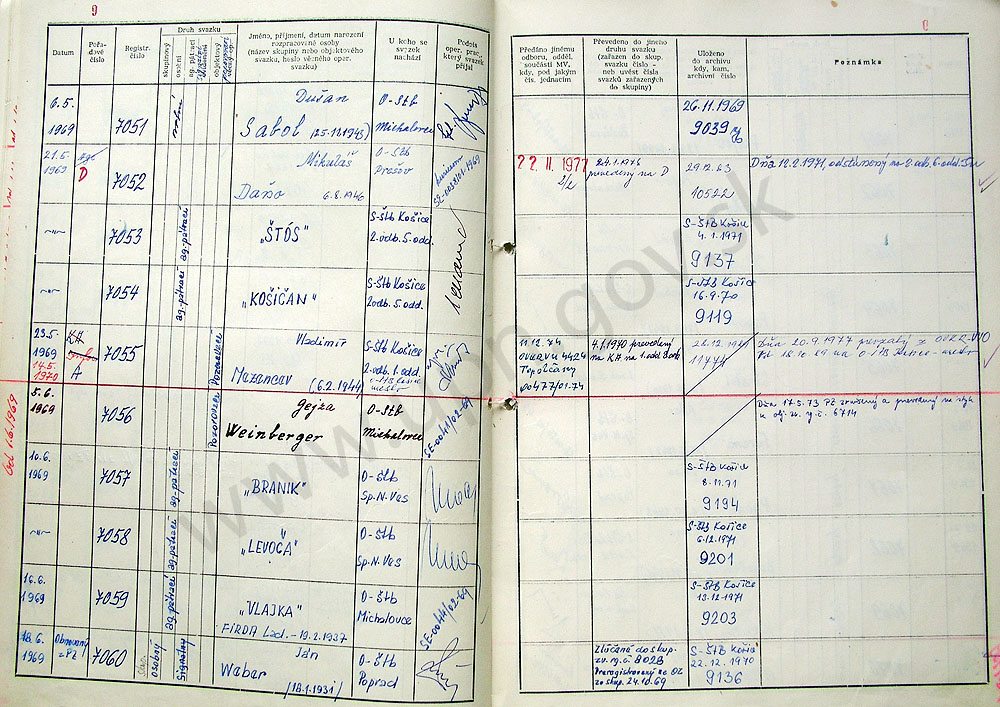 9
Datum
Pořa-
dové
číslo
Registr.
číslo
Druh svazku
skupinový
osobní
ag. pátrací
objektový
Jméno, příjmení, datum narození
rozpracované osoby
(název skupiny nebo objektového
svazku, heslo věčného oper.
svazku)
U koho se
svazek
nachází
Podpis
oper. prac.
který svazek
přijal
Předáno jinému
odboru, odděl.
součásti MV,
kdy, pod jakým
čís. jednacím
Převedeno do jiného
druhu svazku
(zařazen do skup.
svazku číslo -
neb uvést čísla
svazků zařazených
do skupiny)
Uloženo
do archivu
kdy, kam,
archivní číslo
Poznámka
6.5.
1969
7051
Dušan
Sabol (25.11.1943)
O-Štb
Michalovce
26.11.1969
9039
21.5.
1969
D
7052
Mikuláš
Daňo 6.8.1946
O-Štb
Prešov
22. II. 1977
24.1.1976
prevedený na D
29.12.83
10522
Dňa 12.2.1971, odstúpený na 2. odb. 6. odd.
7053
ag. pátrací
„ŠTÓS"
S-Štb Košice
2.odb.5.odd.
S-ŠTB Košice
4.1.1971
9137
7054
ag. pátrací
„KOŠIČAN"
S-Štb Košice
2odb.5.odd.
S-ŠTB Košice
16.9.70
9119
23.5.
1969
14.5.
1970
KA
A
7055
Pozorovací
Vladimír
Mazancev (6.2.1944)
S-Štb Košice
2.odb.1.odd.
11.12.74
OVKR VÚ 4424
Topoľčany
4.1.1970 prevedený
na KA na 1.odd. 8 odb.
11444
Dňa 20.9.1977 prevzatý z OVKR-VVO
od 1.6.1969
5.6.
1969
7056
Pozorovací
Gejza
Weinberger
O-Štb
Michalovce
SE-0041/02-69
Dňa 17.5.73 PZ zrušený a prevedený na styk
k obj. zv. r.č. 6714
10.6.
1969
7057
ag. pátrací
„BRANIK"
O-Štb
Sp.N.Ves
S-ŠTB Košice
8.11.71
9194
7058
ag. pátrací
„LEVOČA"
O-Štb
Sp.N.Ves
S-ŠTB Košice
6.12.1971
9201
16.6.
1969
7059
ag. pátrací
„VLAJKA"
FIRDA Lad. - 19.2.1937
O-Štb
Michalovce
SE-0041/02-69
S-ŠTB Košice
13.12.1971
9203
18.6.
1969
Obnovený
z PZ
7060
Osobný
Signálny
Ján
Weber (18.1.1931)
O-Štb
Poprad
Zlúčené do skup.
zv. r.č. 8028
Preregistrovaný zo OZ
zo skup. 24.10.69
S-ŠTB Košice
22.12.1970
9136
www.upn.gov.sk